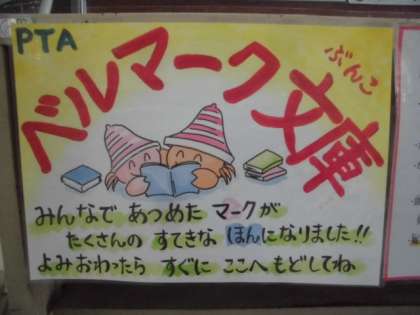 PTA
ベルマーク文庫
ぶんこ
みんなで あつめた マークが
たくさんの すてきな ほんになりました!!
よみおわったら すぐに ここへ もどしてね